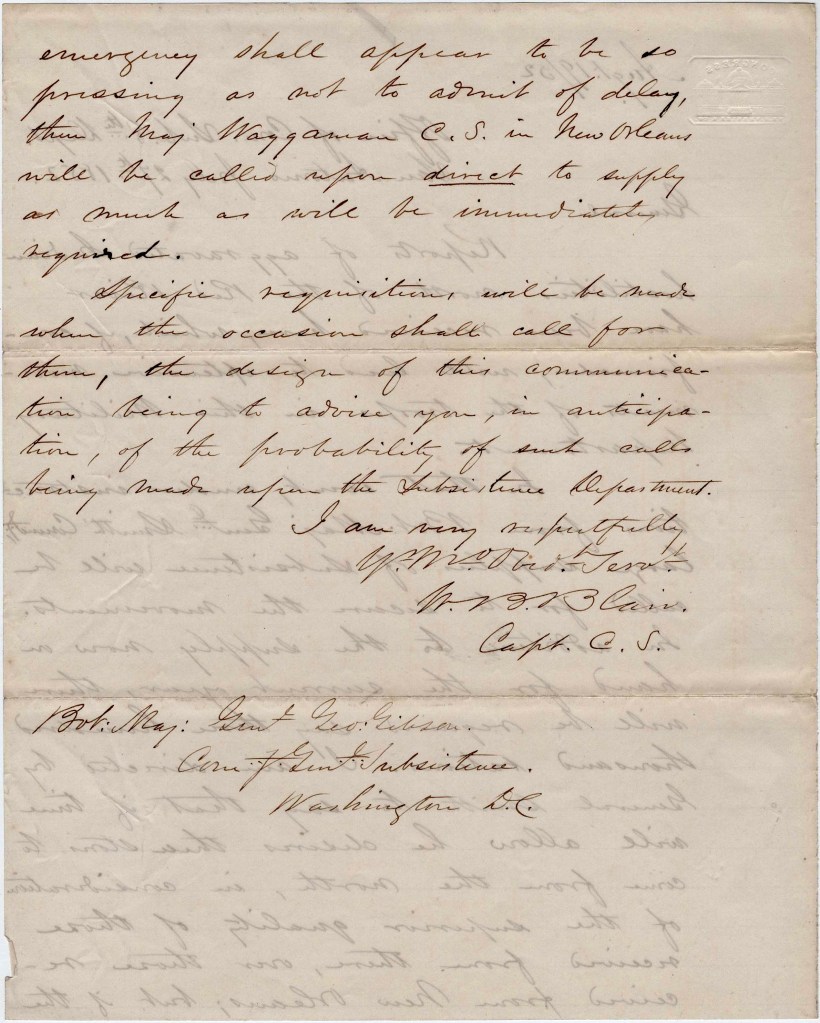 emergency shall appear to be so
pressing as not to admit of delay,
then Maj Waggaman C.S. in New Orleans
will be called upon direct to supply
as much as will be immediately
required.
Specific requisitions will be made
when the occasion shall call for
them, the design of this communica-
tion being to advise you, in anticipa-
tion, of the probability of such calls
being made upon the Subsistence Department.
I am very respectfully
Yr. Mo. Obedt. Servt.
W. B. Blair.
Capt. C. S.
Bvt: Maj: Genl. Geo: Gibson.
Comy. Genl: Subsistence.
Washington D.C.